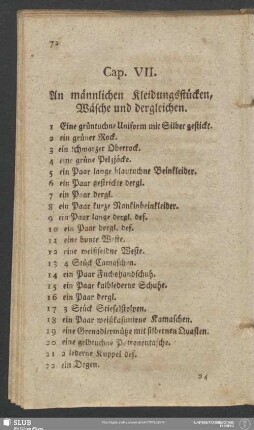 72
Cap. VII.
An männlichen Kleidungsstücken,
Wäsche und dergleichen.
1 Eine grüntuchne Uniform mit Silber gestickt.
2 ein grüner Rock.
3 ein schwarzer Oberrock.
4 eine grüne Pelzjacke.
5 ein Paar lange blautuchne Beinkleider.
6 ein Paar gestrickte dergl.
7 ein Paar dergl.
8 ein Paar kurze Nankinbeinkleider.
9 ein Paar lange dergl. def.
10 ein Paar dergl. def.
11 eine bunte Weste.
12 eine weißseidne Weste.
13 4 Stück Camaschen.
14 ein Paar Fuchshandschuh.
15 ein Paar kalblederne Schuhe.
16 ein Paar dergl.
17 3 Stück Stiefelstolpen.
18 ein Paar Kamaschen.
19 eine Grenadiermütze mit silbernen Quasten.
20 eine gelbtuchne Patronentasche.
21 2 lederne Kuppel def.
22 ein Degen.
24
SLUB